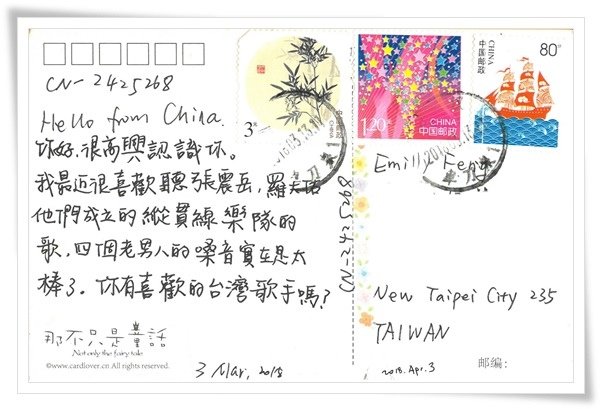 CN-2425268
Hello from China.
你好,很高興認識你。
我最近很喜歡聽張震岳,羅大佑
他們成立的縱貫線樂隊的
歌,四個老男人的嗓音實在是太
棒了。你有喜歡的台灣歌手嗎?
那不只是 童話
Not only the fairy tale
www.cardlover.cn All rights reserved.
3 Mar, 2018
CN-2425268
3元
中国邮政
1.20元
CHINA
中国邮政
80分
中国邮政
CHINA
Emilly Feng
New Taipei City 235
TAIWAN
2018. Apr. 3
邮编: